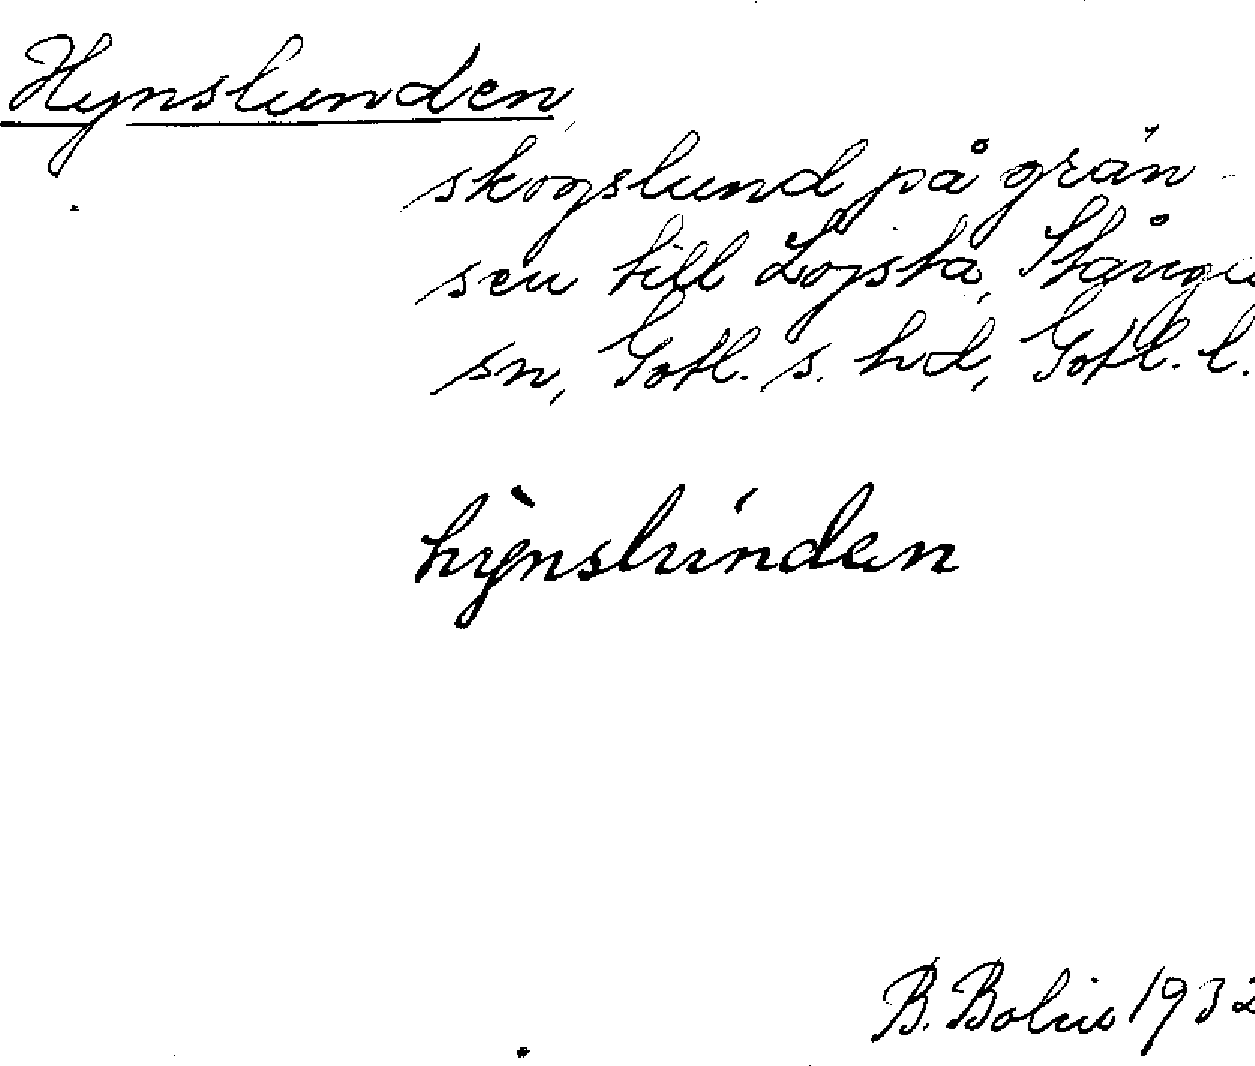 Hynslunden,
skogslund på grän-
sen till Löjsta, Stånga
sn, Gotl. s. hd, Gotl. l.
hỳnslúndan
B. Bolin 1932